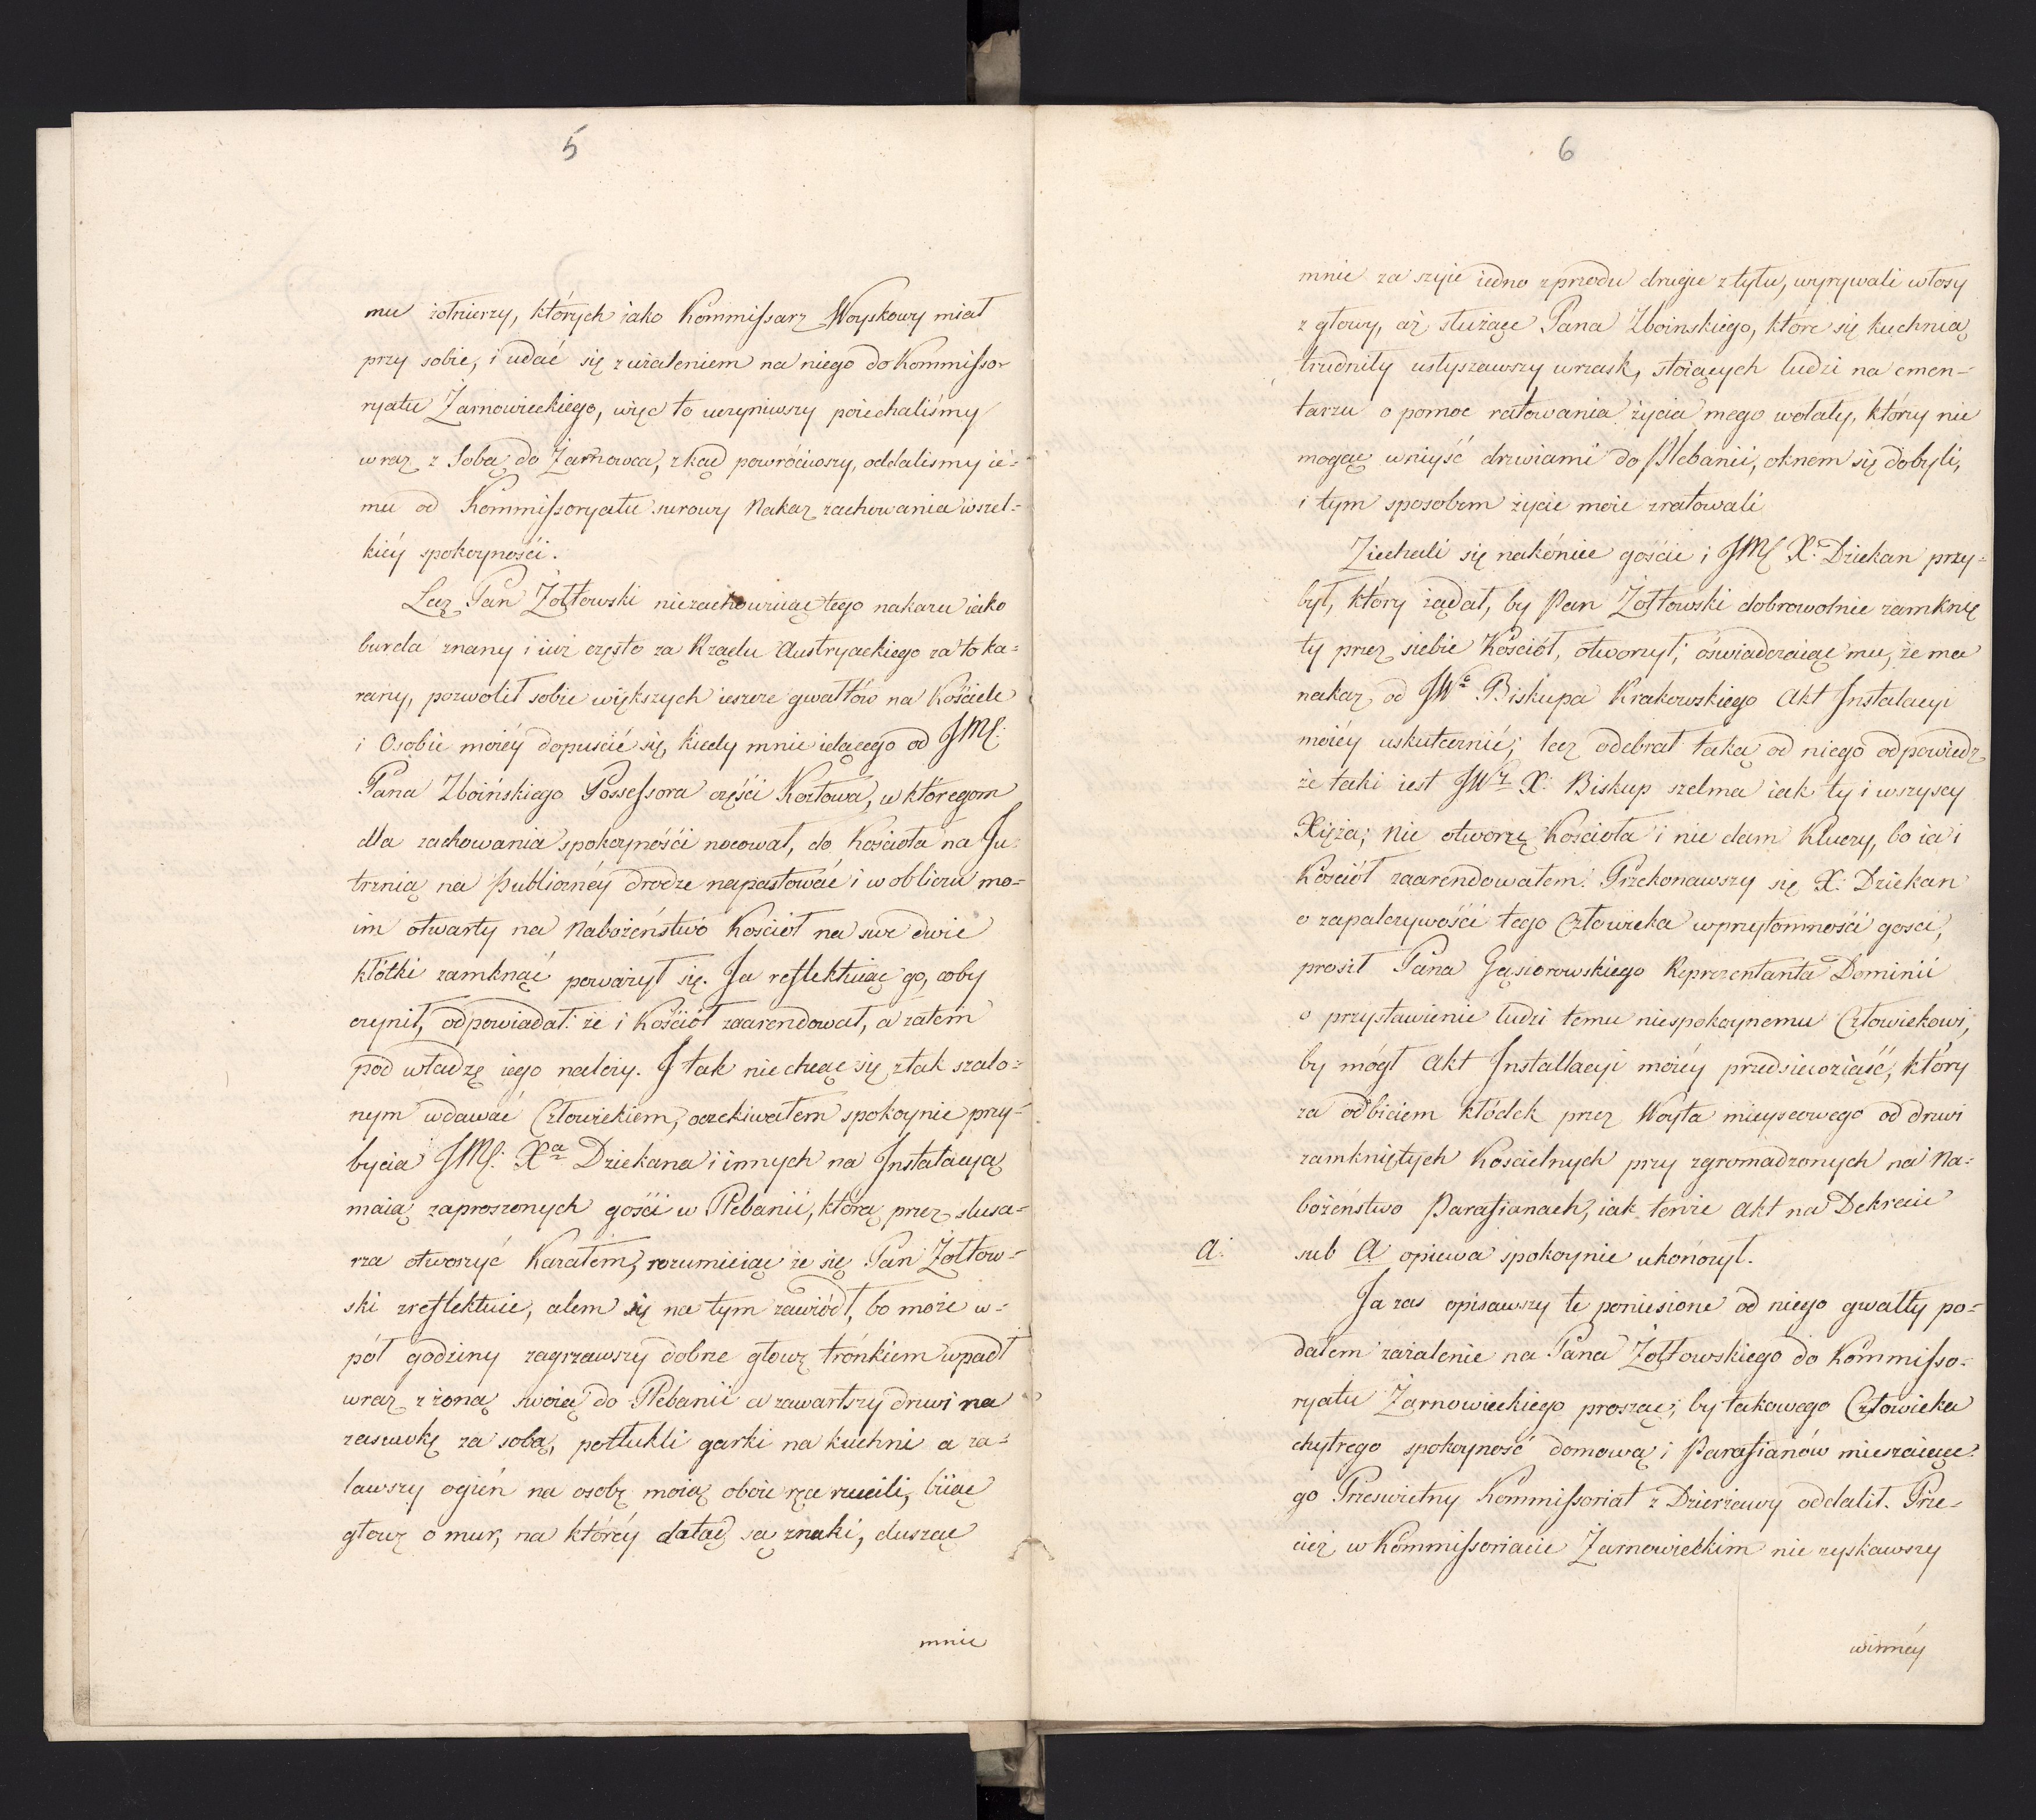 5
mu żołnierzy, których iako Kommissarz Woyskowy miał
przy sobie, i udać się z użaleniem na niego do Kommissor
ryatu Żarnowieckiego, więc to uczyniwszy poiechaliśmy
wraz z Sobą do Żarnowca, zkąd powróciwszy, oddaliśmy ie=
mu od Kommissoryatu surowy Nakaz zachowania wszel=
kiéy spokoyności.
Lecz Pan Żółtowski niezachowuiąc tego nakazu iako
burda znany i iuż często za Rządu Austryackiego za to ka=
rany, pozwolił sobie większych ieszcze gwałtów na Kościele
i Osobie moiéy dopuścić się, kiedy mnie idącego od JMś:
Pana Zboińskiego Possessora części Kozłowa, w któregom
dla zachowania spokoyności nocował, do Kościoła na Ju=
trznią na publicznéy drodze napastować i w obliczu mo=
im otwarty na Nabożeństwo Kościół na swe dwie
kłótki zamknąć poważył się. Ja reflektuiąc go, coby
czynił, odpowiadał: że i Kościół zaarendował, a zatem
pod władzę iego należy. I tak nie chcąc się z tak szalo=
nym wdawać Człowiekiem, oczekiwałem spokoynie przy=
bycia JMś: Xa Dziekana i innych na Instalacyą
maią zaproszonych gości w Plebanii, którą przez slusa=
rza otworzyć Kazałem, rozumieiąc że się Pan Żółtow=
ski zreflektuie, alem się na tym zawiódł, bo może w=
pół godziny zagrzawszy dobrze głowę trónkiem wpadł
wraz z żoną swoią do Plebanii a zawartszy drzwi na
zasuwkę za sobą, potłukli garki na kuchni a za=
lawszy ogień na osobę moią oboie ręce rzucili, biiąc
głowę o mur, na któréy dotąd są znaki, dusząc
mnie
6
mnie za szyie iedno z przodu drugie z tyłu, wyrywali włosy
z głowy, aż służące Pana Zboinskiego, które się kuchnią
trudniły usłyszawszy wrzask, stoiących ludzi na cmen=
tarzu o pomoc ratowania życia mego wołały, który nie
mogąc wniyść drzwiami do Plebanii, oknem się dobyli,
i tym sposobem życie moie zratowali
Ziechali się nakóniec goście i JMś X. Dziekan przy=
był, który żądał, by Pan Żółtowski dobrowolnie zamknię
ty przez siebie Kościół, otworzył; oświadczaiąc mu, że ma
nakaz od JWo Biskupa Krakowskiego Akt Instalacyi
moiéy uskutecznić; lecz odebrał taką od niego odpowiedz
że taki iest JWy X: Biskup szelma iak ty i wszyscy
Xięża; nie otworzę Kościoła i nie dam Kluczy, bo ia i
Kościół zaarendowałem. Przekonawszy się X: Dziekan
o zapalczywości tego Człowieka w przytomności gosci,
prosił Pana Gąsiorowskiego Reprezentanta Dominii
o przystawienie ludzi temu niespokoynemu Człowiekowi,
by mógł Akt Installacyi moiéy przedsiewziąść, który
za odbiciem kłódek przez Woyta mieyscowego od drzwi
zamkniętych Kościelnych przy zgromadzonych na Na=
bożeństwo Parafianach, iak tenże Akt na Dekrecie
a: sub A opiewa spokoynie ukończył.
Ja zas opisawszy te poniesione od niego gwałty po=
dałem zażalenie na Pana Żółtowskiego do Kommisso=
ryatu Żarnowieckiego prosząc, by takowego Człowieka
chytrego spokoyność domową i Parafianów mieszaiące=
go Przeswietny Kommissoriat z Dzierżawy oddalił. Prze=
cież w Kommissoriacie Żarnowieckim nie zyskawszy
winnéy